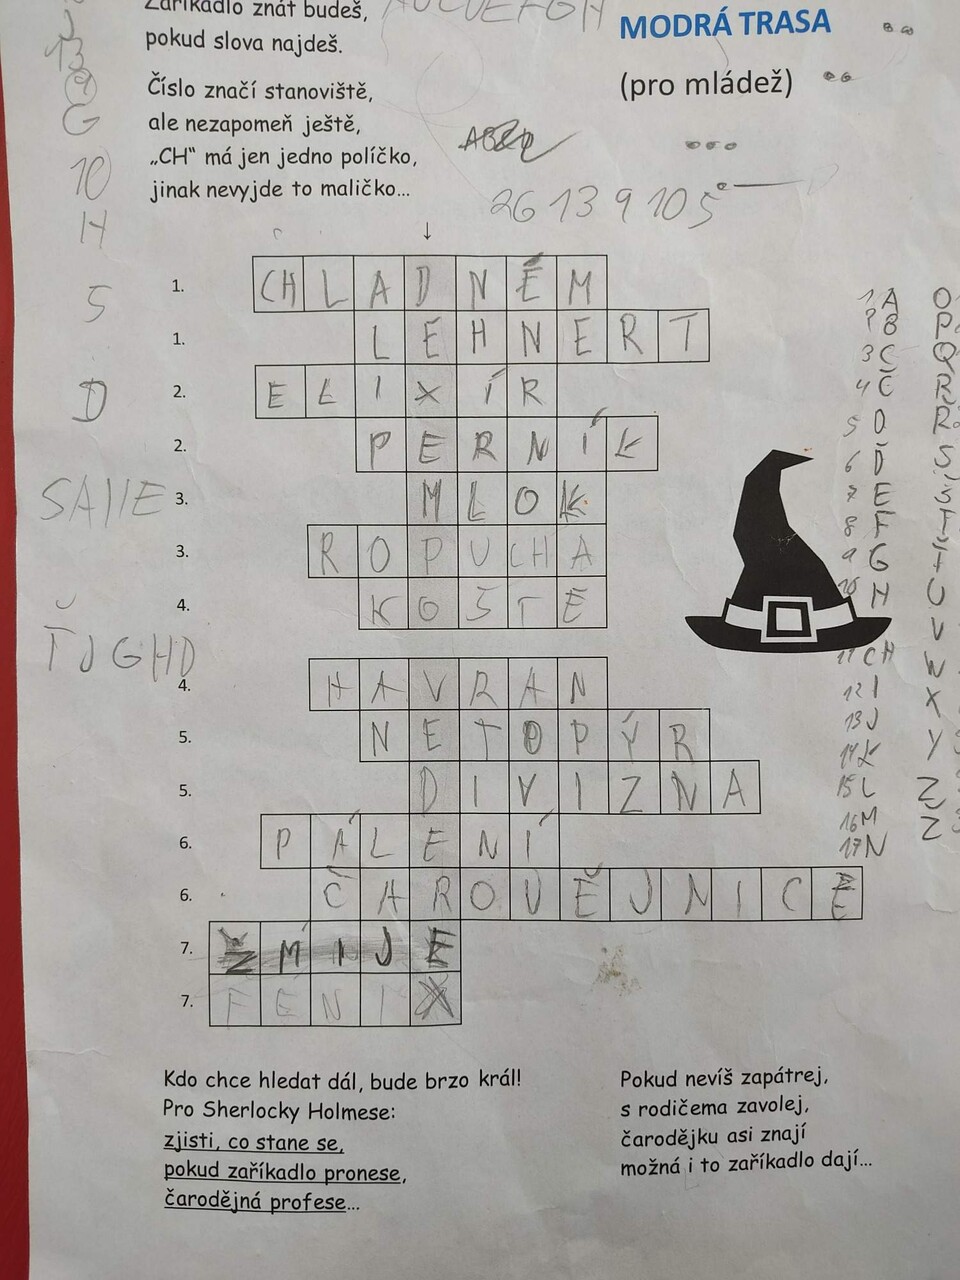 Zaříkadlo znát budeš,
pokud slova najdeš.
MODRÁ TRASA
(pro mládež)
Číslo značí stanoviště,
ale nezapomeň ještě,
„CH" má jen jedno políčko,
jinak nevyjde to maličko...
26 13 9 10 5
13
9
G
10
H
5
D
SAIIE
ŤJGHD
↓
1. CH L A D N É M
1. L E H N E R T
2. E L I X Í R
2. P E R N Í K
3. M L O K
3. R O P U CH A
4. K O Š T Ě
4. H A V R A N
5. N E T O P Ý R
5. D I V I Z N A
6. P Á L E N Í
6. Č A R O D Ě J N I C E
7. Z M I J E
7. F E N I X
1 A O
2 B P
3 C Q
4 Č R
5 D Ř
6 Ď S
7 E Š
8 F T
9 G Ť
10 H U
V
11 CH W
12 I X
13 J Y
14 K
15 L Z
16 M Ž
17 N
Kdo chce hledat dál, bude brzo král!
Pro Sherlocky Holmese:
zjisti, co stane se,
pokud zaříkadlo pronese,
čarodějná profese...
Pokud nevíš zapátrej,
s rodičema zavolej,
čarodějku asi znají
možná i to zaříkadlo dají...